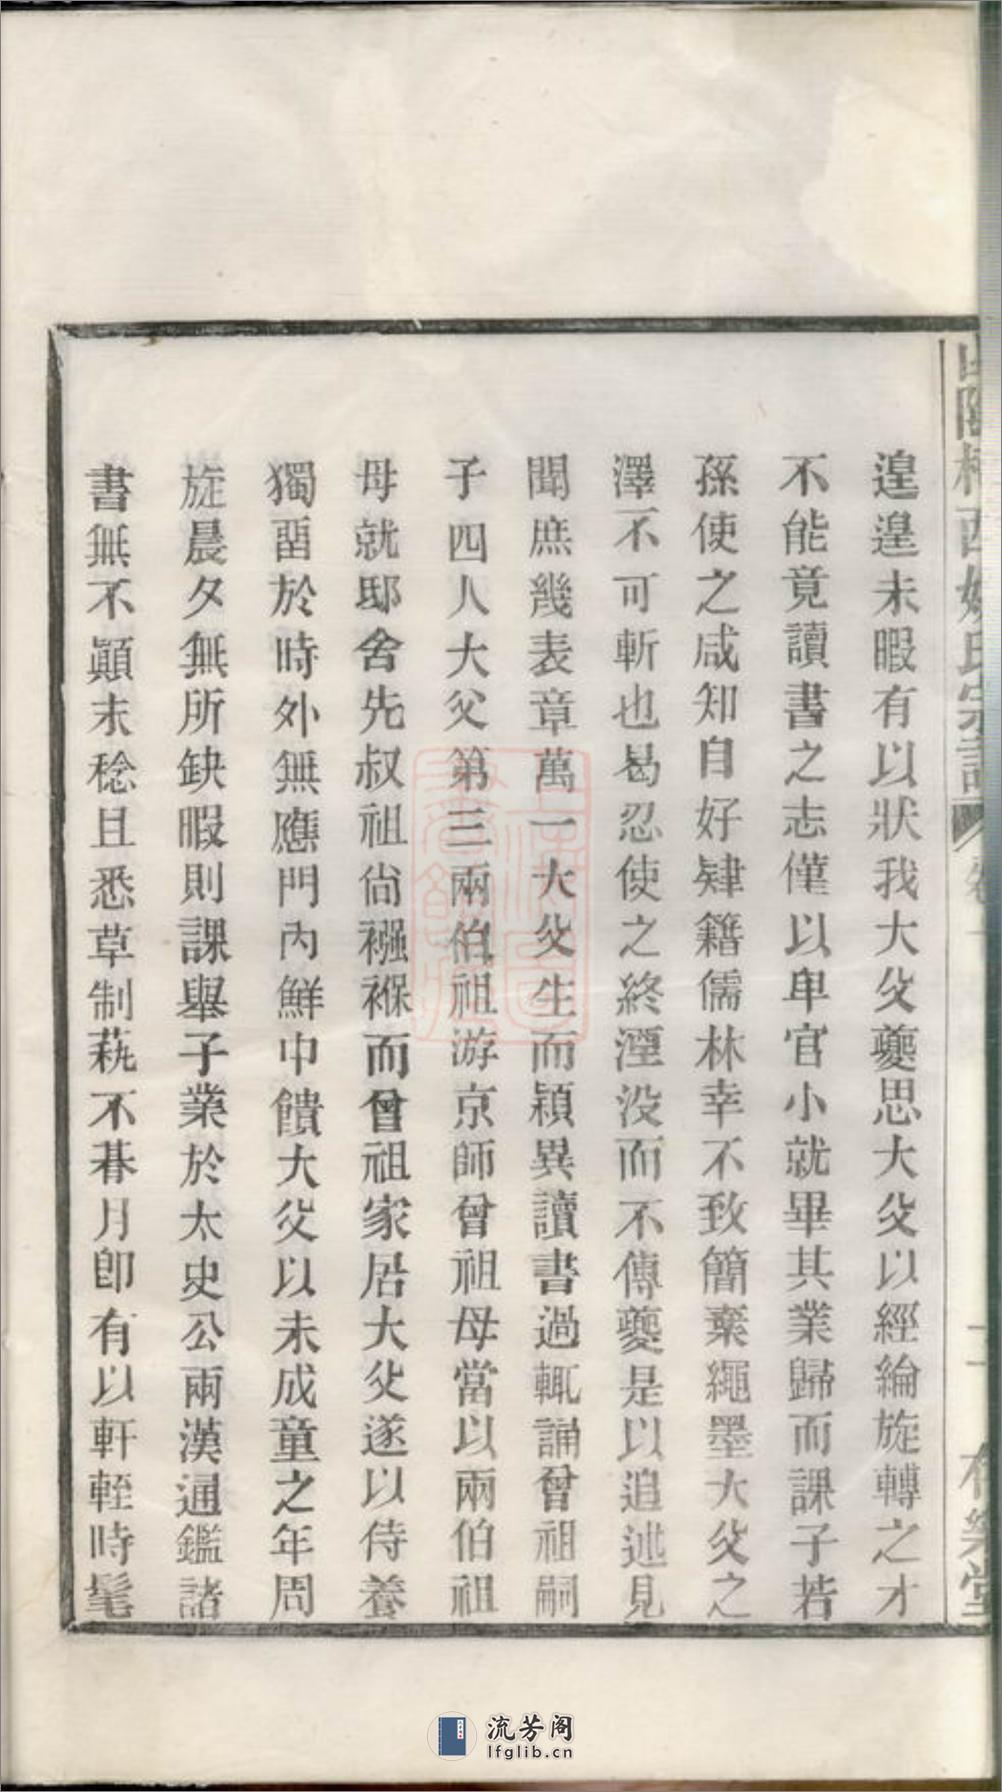 遑遑未暇有以狀我大父夔思大父以經綸旋轉之才
不能竟讀書之志僅以卑官小就畢其業歸而課子若
孫使之咸知自好肄籍儒林幸不致簡棄繩墨大父之
澤不可斬也曷忍使之終湮没而不傳夔是以追述見
聞庶幾表章萬一大父生而穎異讀書過輒誦曾祖嗣
子四人大父第三兩伯祖游京師曾祖母當以兩伯祖
母就邸舍先叔祖尙襁褓而曾祖家居大父遂以侍養
獨畱於時外無應門內鮮中饋大父以未成童之年周
旋晨夕無所缺暇則課舉子業於太史公兩漢通鑑諸
書無不顚末稔且悉草制蓺不朞月卽有以軒輊時髦
流芳阁
lfglib.cn